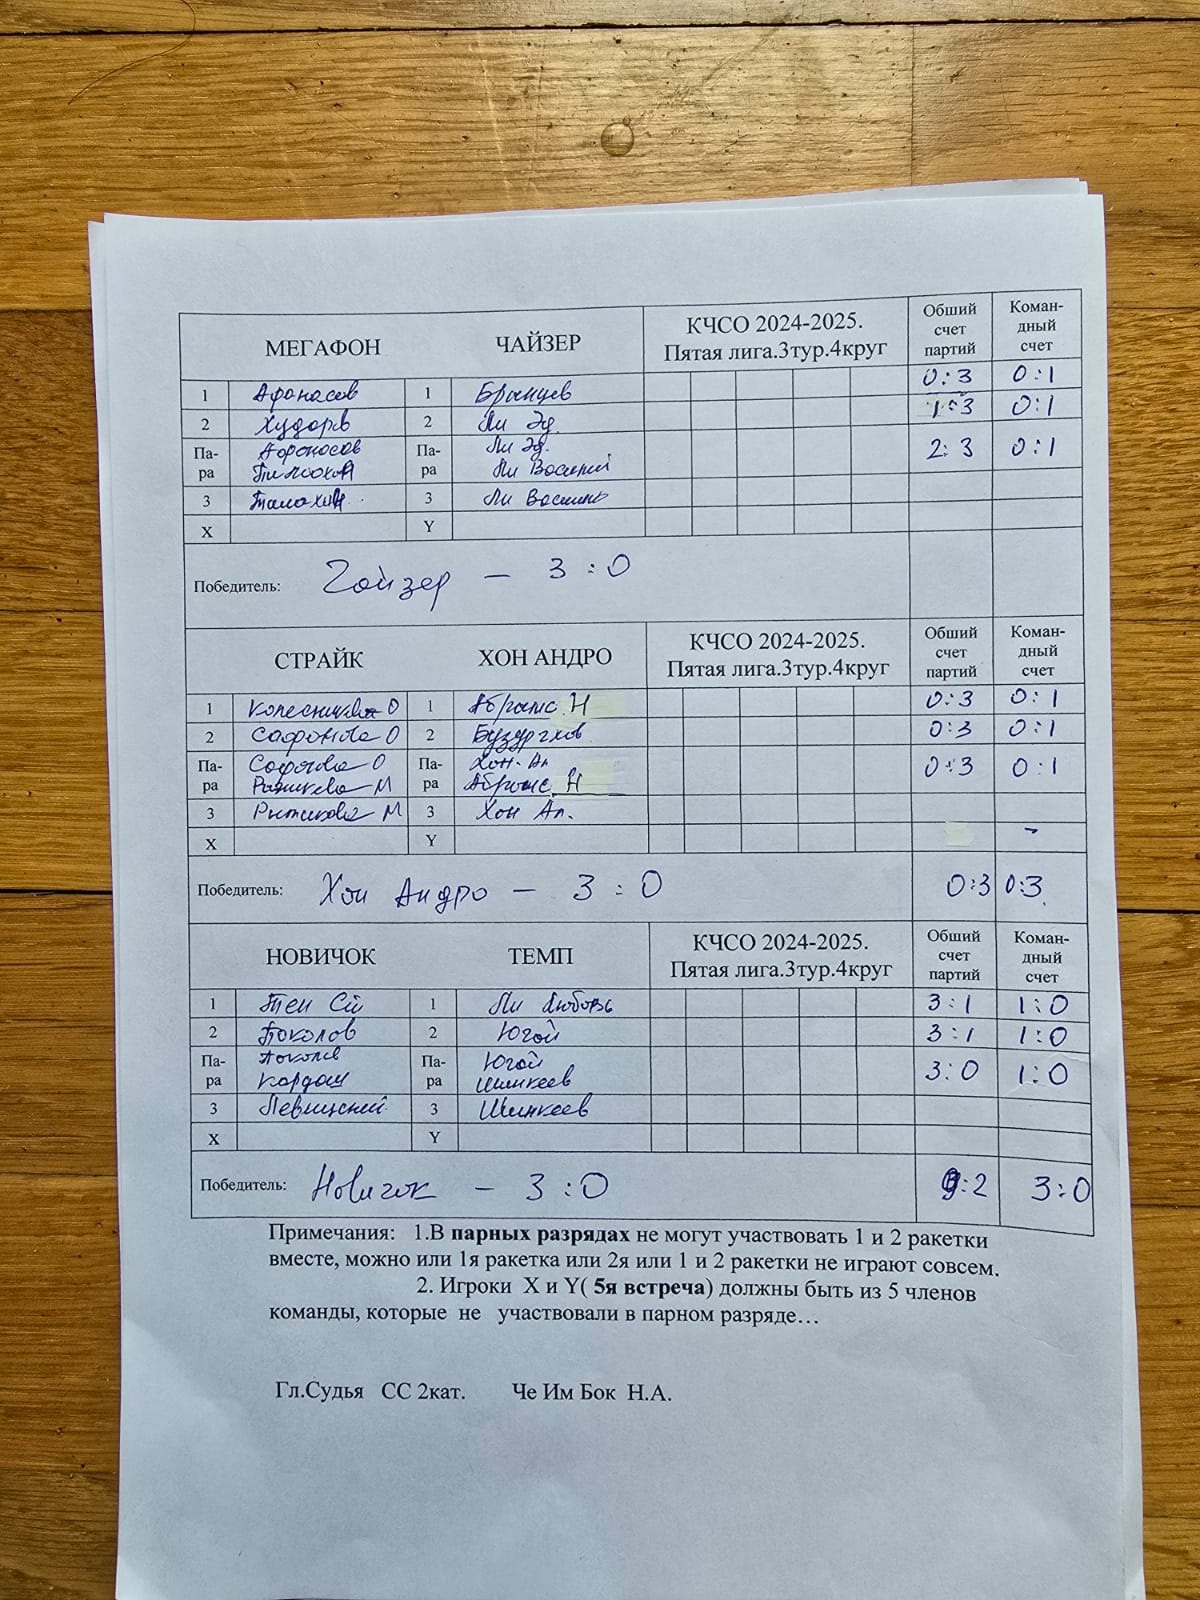 МЕГАФОН ЧАЙЗЕР КЧСО 2024-2025. Пятая лига.3тур.4круг Обший счет партий Коман-дный счет
1 Афанасов 1 Брынцев 0:3 0:1
2 Худоев 2 Ли Эд. 1:3 0:1
Па-ра Афонасов Па-ра Ли Эд. 2:3 0:1
Ли Василий
3 3 Ли Василий
X Y
Победитель: Чайзер – 3:0
СТРАЙК ХОН АНДРО КЧСО 2024-2025. Пятая лига.3тур.4круг Обший счет партий Коман-дный счет
1 Колесникова О 1 Абрамс Н 0:3 0:1
2 Сафонова О 2 0:3 0:1
Па-ра Сафонова О Па-ра Хон. Ан 0:3 0:1
М Абрамс Н
3 М 3 Хон Ан.
X Y -
Победитель: Хон Андро – 3:0 0:3 0:3
НОВИЧОК ТЕМП КЧСО 2024-2025. Пятая лига.3тур.4круг Обший счет партий Коман-дный счет
1 Тен 1 Ли Любовь 3:1 1:0
2 Поколов 2 Югай 3:1 1:0
Па-ра Поколов Па-ра Югай 3:0 1:0
Кардаш Шинкеев
3 Левицкий 3 Шинкеев
X Y
Победитель: Новичок – 3:0 9:2 3:0
Примечания: 1.В парных разрядах не могут участвовать 1 и 2 ракетки
вместе, можно или 1я ракетка или 2я или 1 и 2 ракетки не играют совсем.
2. Игроки X и Y( 5я встреча) должны быть из 5 членов
команды, которые не участвовали в парном разряде…
Гл.Судья СС 2кат. Че Им Бок Н.А.